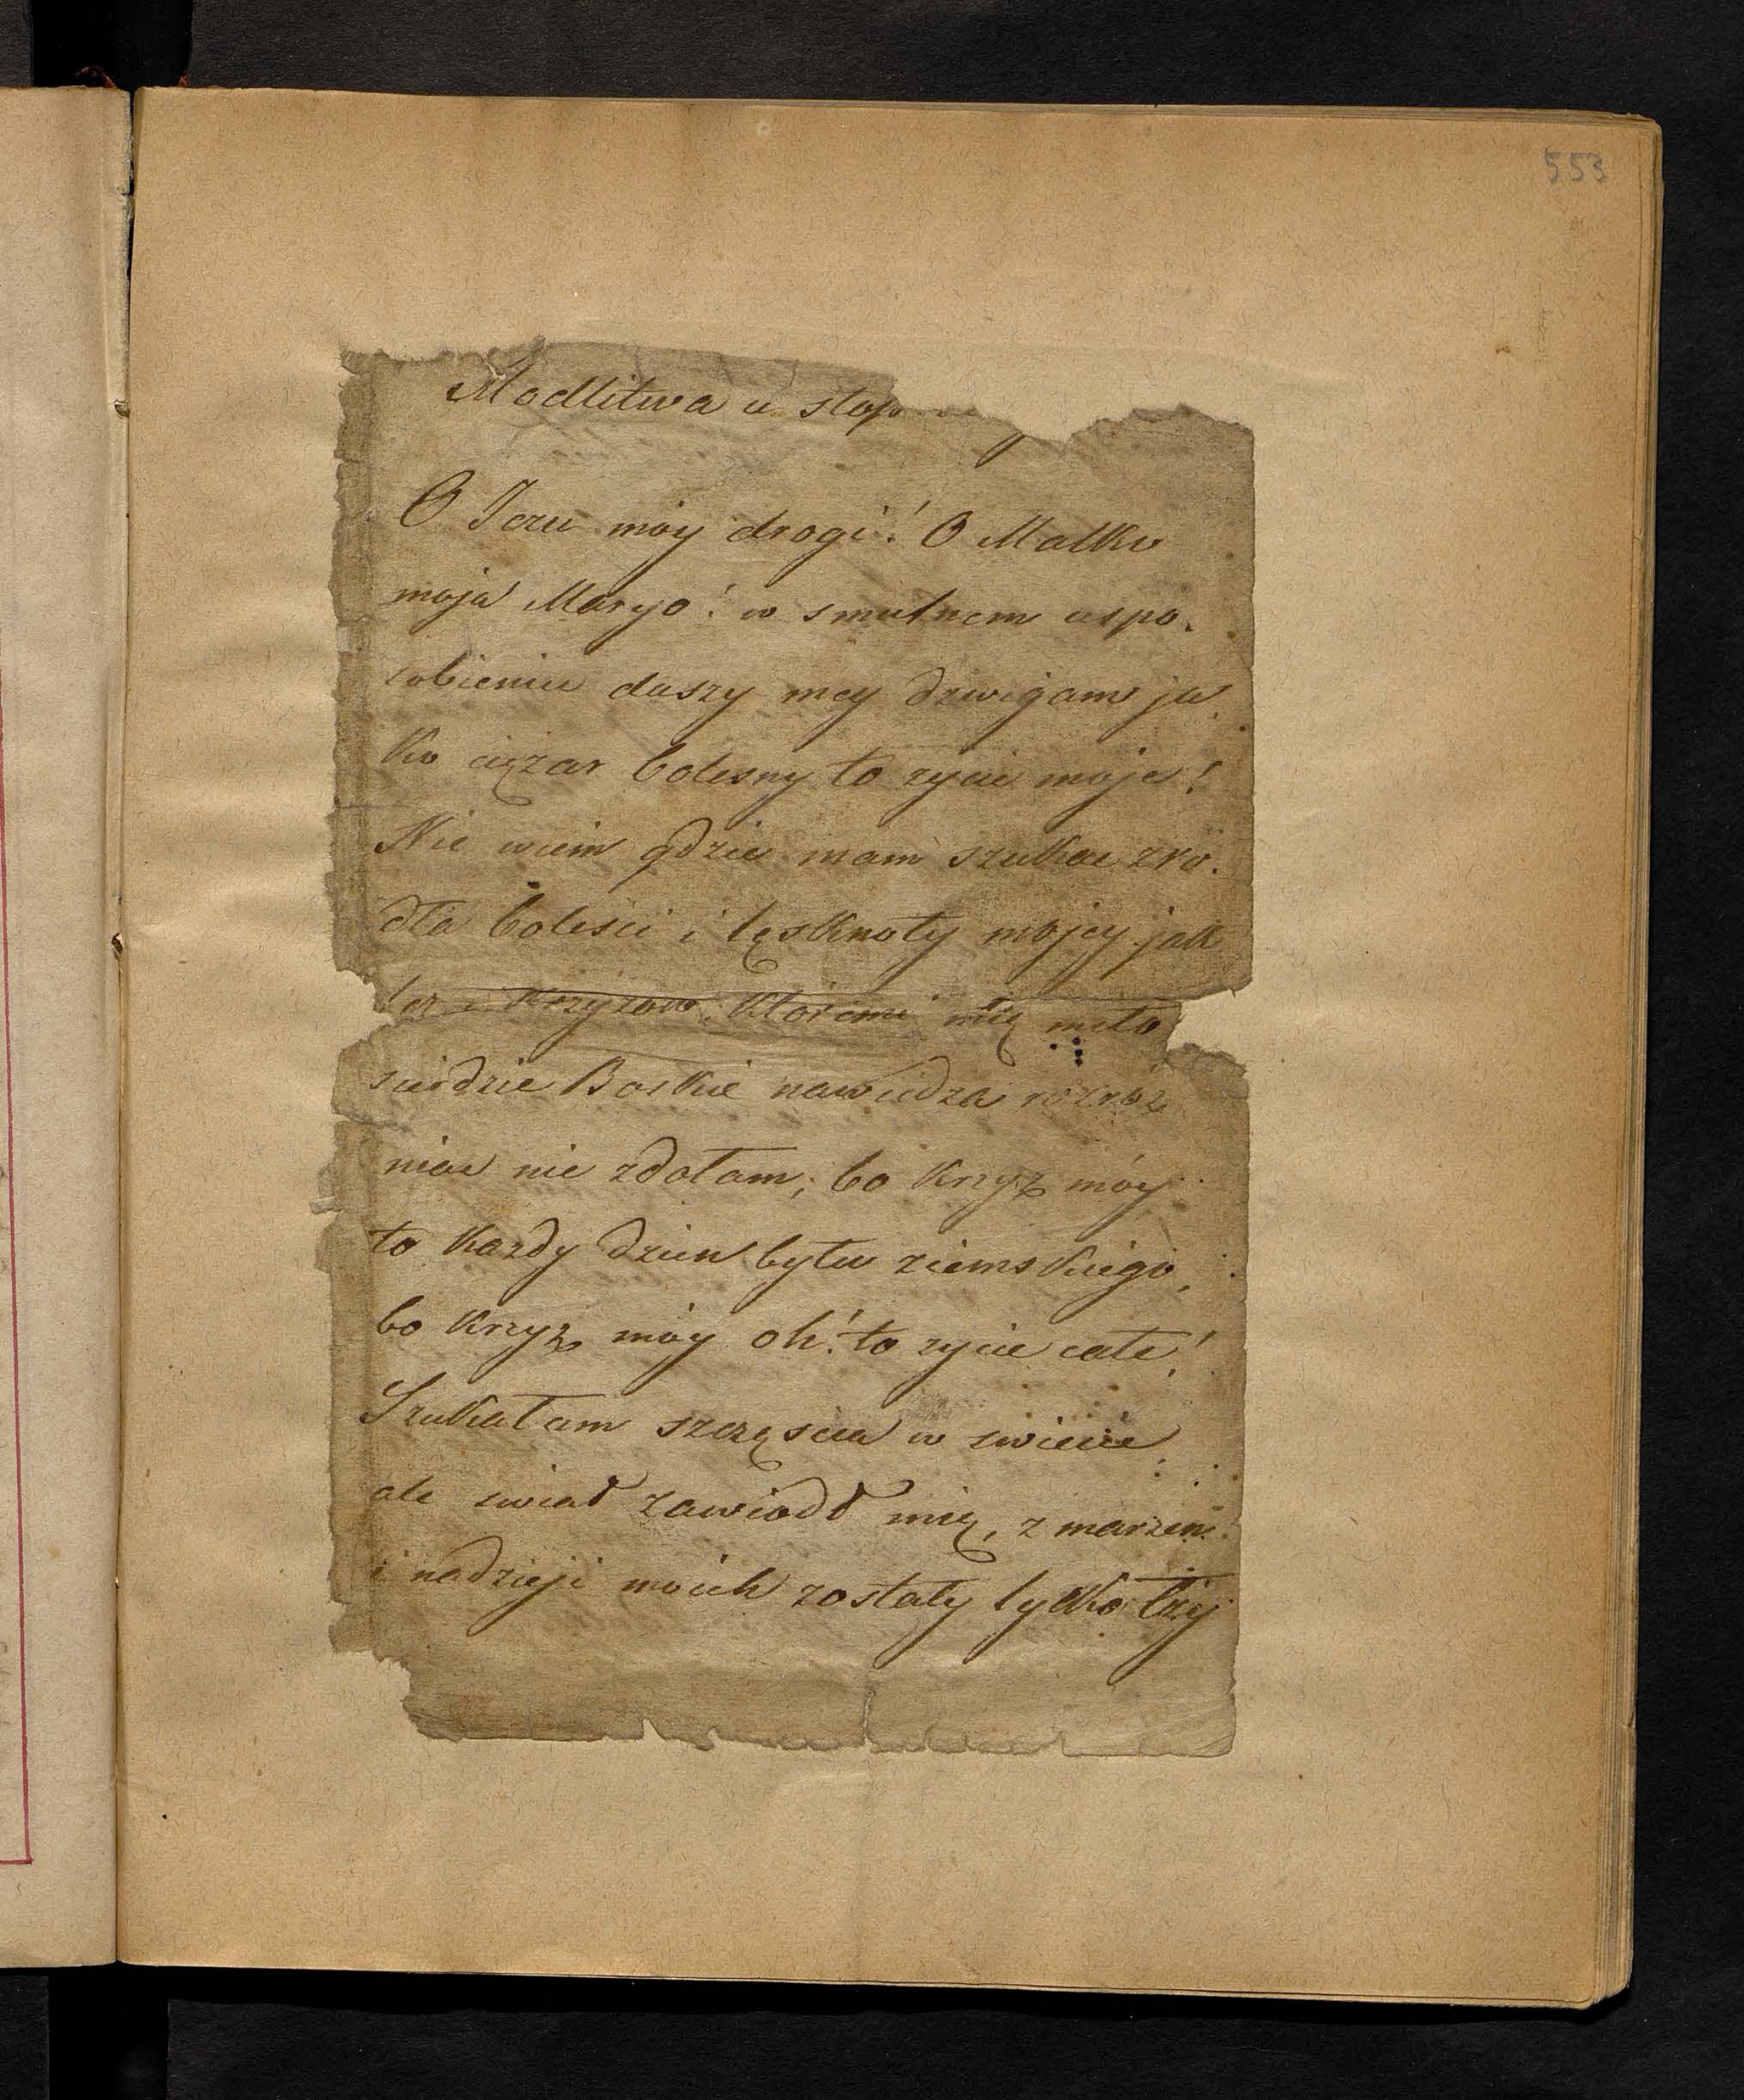 553
Modlitwa u stop
O Jezu móy drogi! O Matko
moja Maryo! w smutnem uspo.
sobieniu duszy mey dzwigam ja
ko ciężar bolesny to zycie moje!
Nie wiem gdzie mam szukac zro.
dła bolesci i tęsknoty mojey jak
łez i Krzyzow, Któremi mię miło
sierdzie Boskie nawiedza rozroż
niac nie zdołam; bo Krzyż móy
to Kazdy dzien bytu ziemskiego,
bo Krzyż móy oh! to zycie całe!
Szukałam szczęscia w swiecie,
ale swiat zawiodł mię, z marzen
i nadzieji moich zostały tylko łzy